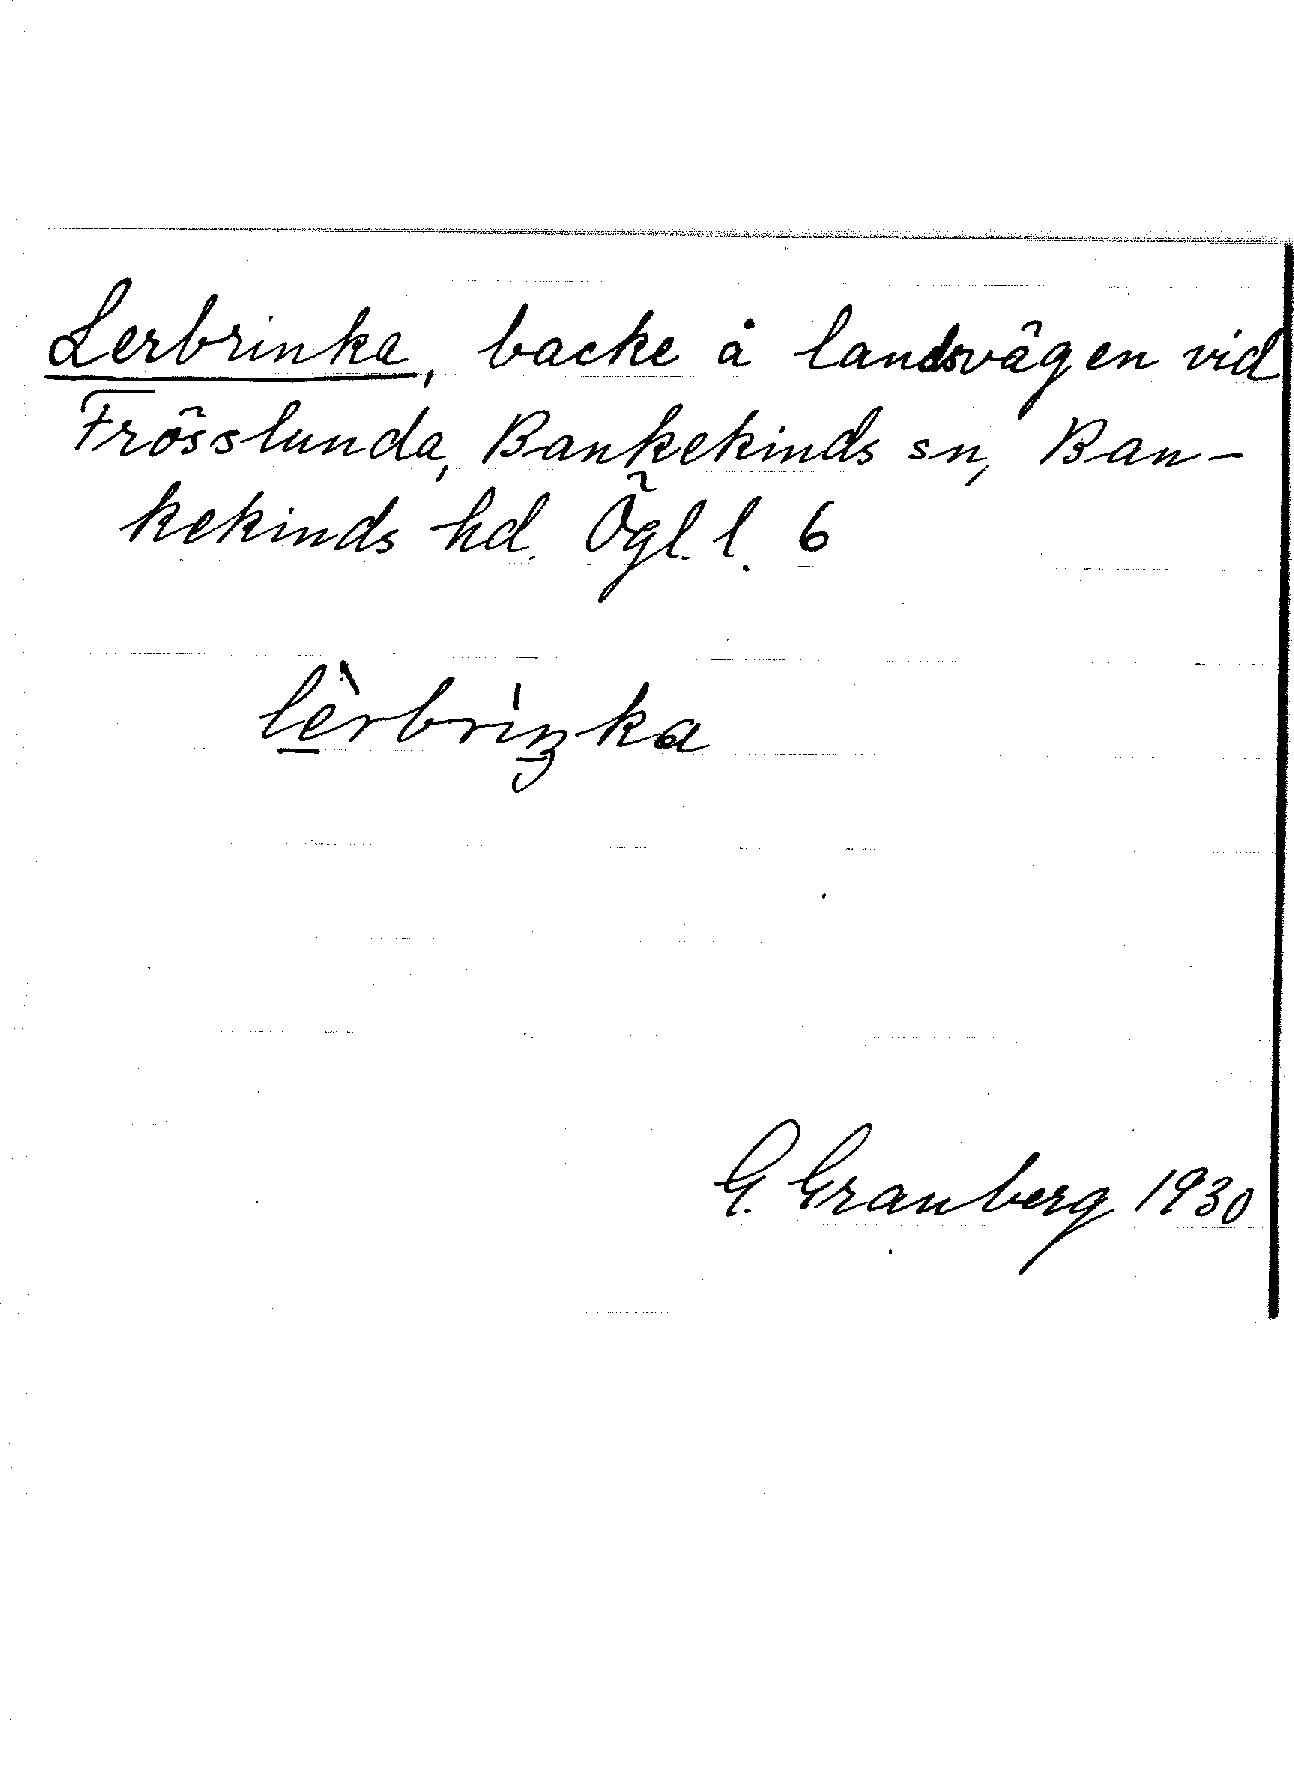 Lerbrinka, backe å landsvägen vid
Frösslunda, Bankekinds sn, Ban-
kekinds hd. Ögl. l. 6
lèrbrìŋka
G. Granberg 1930